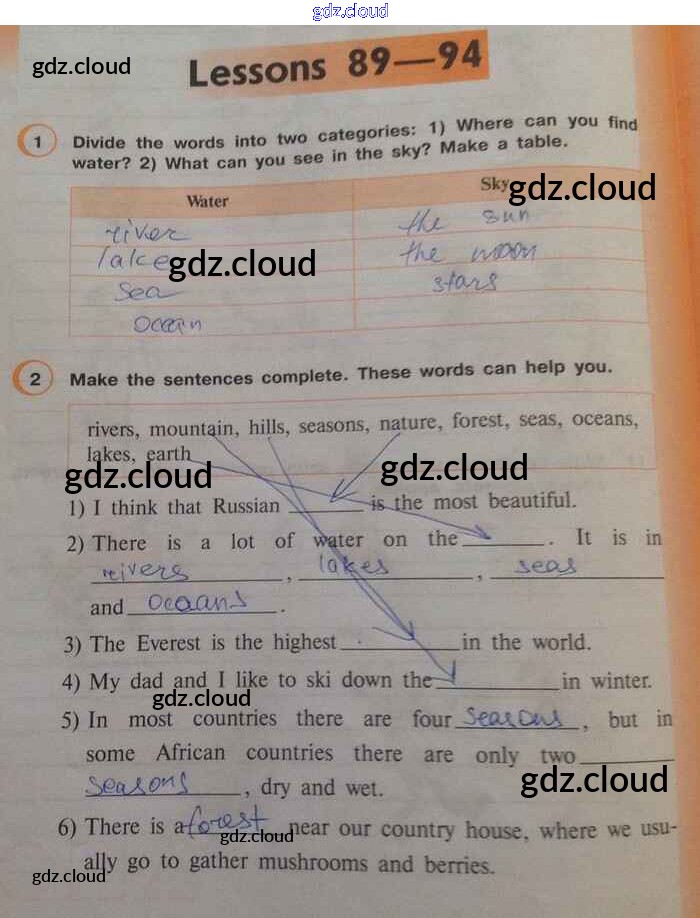 gdz.cloud
gdz.cloud
Lessons 89—94
1 Divide the words into two categories: 1) Where can you find
water? 2) What can you see in the sky? Make a table.
Water Sky
gdz.cloud
river the sun
lake the moon
gdz.cloud
sea stars
ocean
2 Make the sentences complete. These words can help you.
rivers, mountain, hills, seasons, nature, forest, seas, oceans,
lakes, earth
gdz.cloud gdz.cloud
1) I think that Russian ______ is the most beautiful.
2) There is a lot of water on the ______. It is in
rivers, lakes, seas
and ocaans.
3) The Everest is the highest ______ in the world.
4) My dad and I like to ski down the ______ in winter.
gdz.cloud
5) In most countries there are four seasons, but in
some African countries there are only two ______
seasons, dry and wet.
gdz.cloud
6) There is a forest near our country house, where we usu-
gdz.cloud
ally go to gather mushrooms and berries.
gdz.cloud